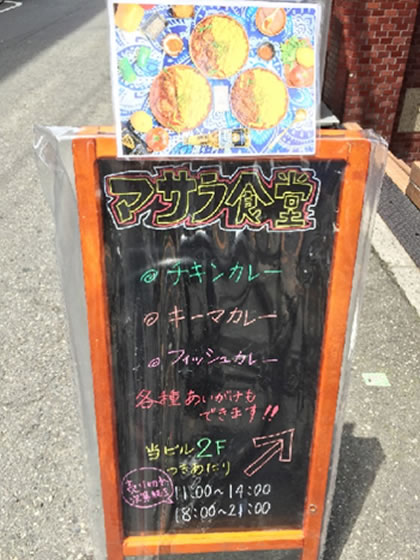 マサラ食堂
◎チキンカレー
◎キーマカレー
◎フィッシュカレー
各種あいがけも
できます!!
当ビル2F
つきあたり
11:00~14:00
18:00~21:00